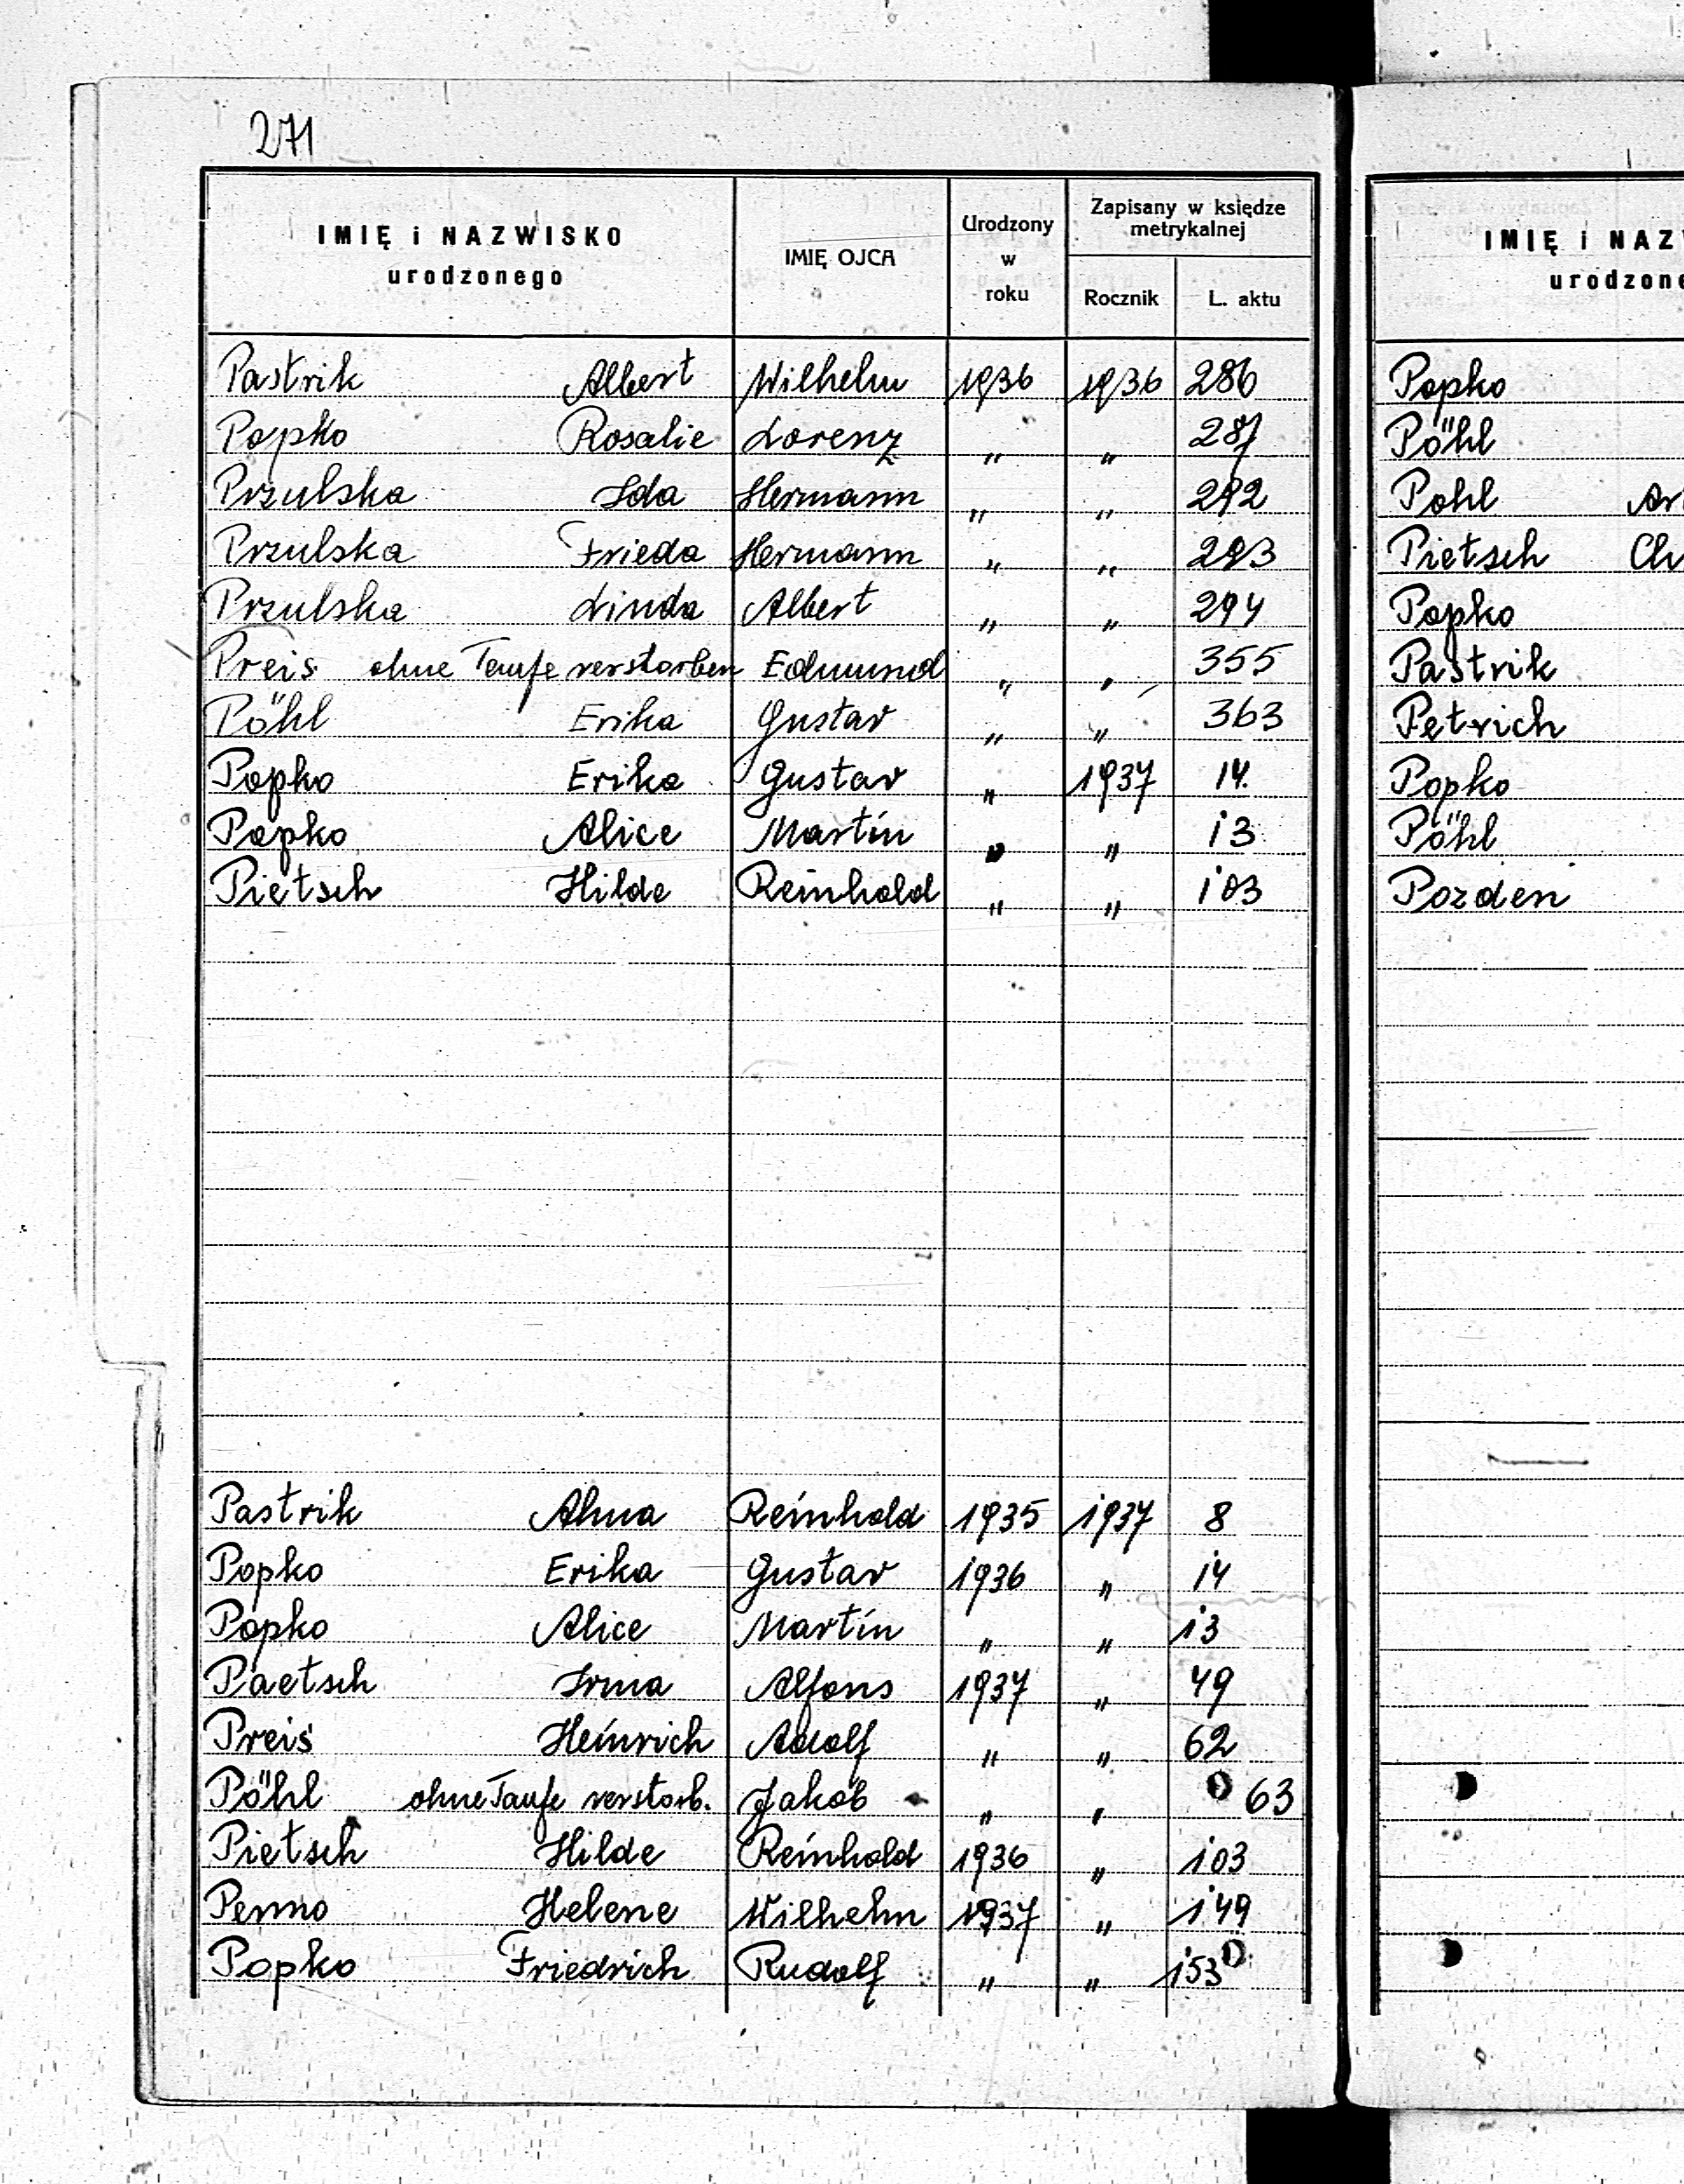 271
IMIĘ i NAZWISKO
urodzonego
IMIĘ OJCA
Urodzony
w
roku
Zapisany w księdze
metrykalnej
Rocznik
L. aktu
Pastrik Albert Wilhelm 1936 1936 286
Popko Rosalie Lorenz " " 287
Przulska Ida Hermann " " 292
Przulska Frieda Hermann " " 293
Przulska Linda Albert " " 294
Preis ohne Taufe verstorben Edmund " " 355
Pöhl Erika Gustav " " 363
Popko Erika Gustav " 1937 14.
Popko Alice Martin " " 13
Pietsch Hilde Reinhold " " 103
Pastrik Alma Reinhold 1935 1937 8
Popko Erika Gustav 1936 " 14
Popko Alice Martin " " 13
Paetsch Irma Alfons 1937 " 49
Preis Heinrich Adolf " " 62
Pöhl ohne Taufe verstorb. Jakob " " 63
Pietsch Hilde Reinhold 1936 " 103
Penno Helene Wilhelm 1937 " 149
Popko Friedrich Rudolf " " 153
IMIĘ i NAZ
urodzone
Popko
Pöhl
Pohl Ar
Pietsch Ch
Popko
Pastrik
Petrich
Popko
Pöhl
Pozden